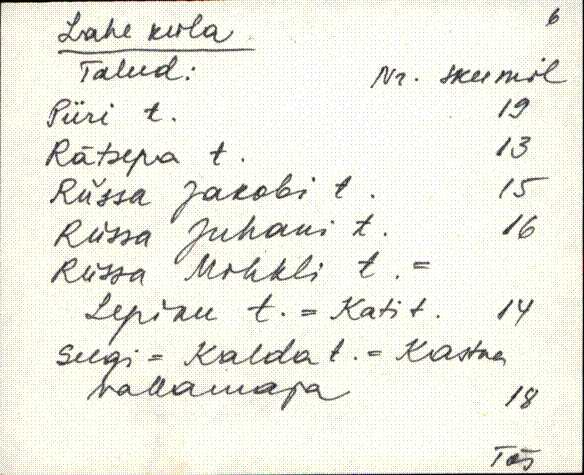 6
Lahe küla
Talud: Nr. skeemil
Püri t. 19
Rätsepa t. 13
Rüssa Jakobi t. 15
Rüssa Juhani t. 16
Rüssa Mihkli t. =
Lepiku t. = Kati t. 14
Selgi = Kalda t. = Kastna
vallamaja 18